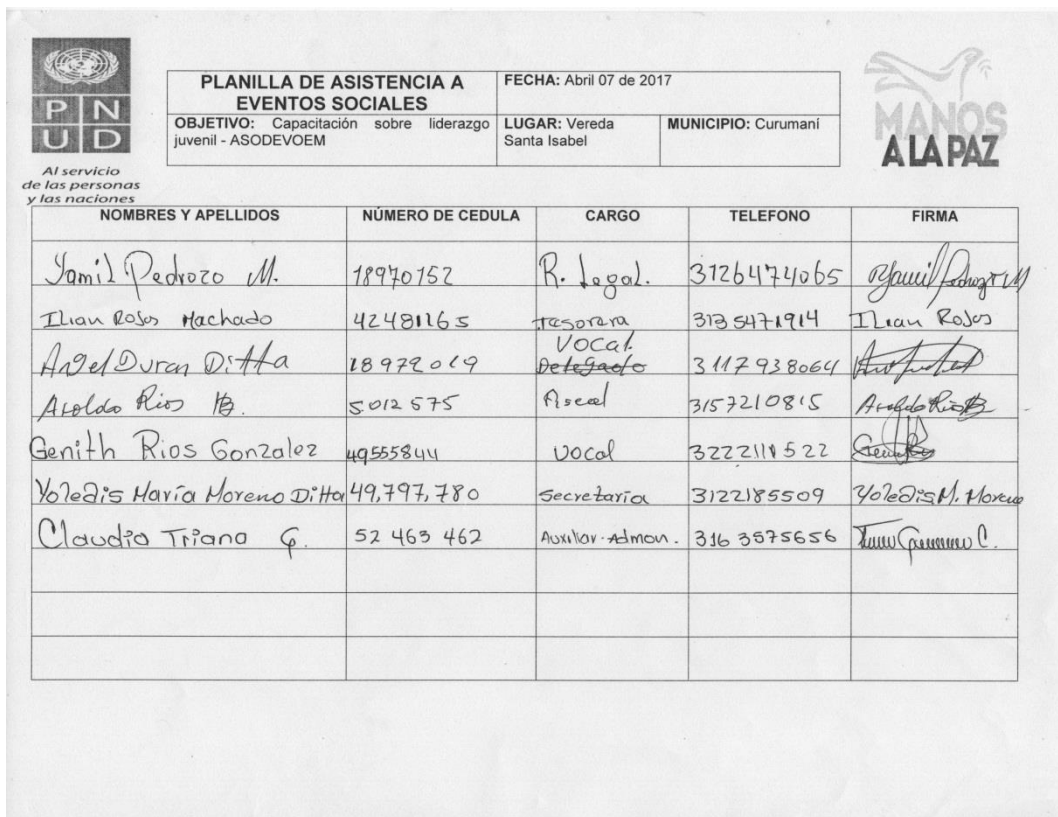 PNUD
Al servicio
de las personas
y las naciones
PLANILLA DE ASISTENCIA A
EVENTOS SOCIALES
FECHA: Abril 07 de 2017
OBJETIVO: Capacitación sobre liderazgo
juvenil - ASODEVOEM
LUGAR: Vereda
Santa Isabel
MUNICIPIO: Curumaní
MANOS
A LA PAZ
NOMBRES Y APELLIDOS NÚMERO DE CEDULA CARGO TELEFONO FIRMA
Yamil Pedrozo M. 18970152 R. Legal. 3126474065 Yamil Pedrozo M
Ilian Rosos Machado 42481165 Tesorera 3135471914 Ilian Rosos
Angel Duran Ditta 18972019 Vocal. Delegado 3117938064
Aroldo Rios B. 5.012 575 Fiscal 3157210815 Aroldo Rios B
Genith Rios Gonzalez 49555844 Vocal 3222110522
Yoledis María Moreno Ditta 49,797,780 Secretaria 3122185509 Yoledis M. Moreno
Claudia Triana G. 52 463 462 Auxiliar-Admon. 316 3575656